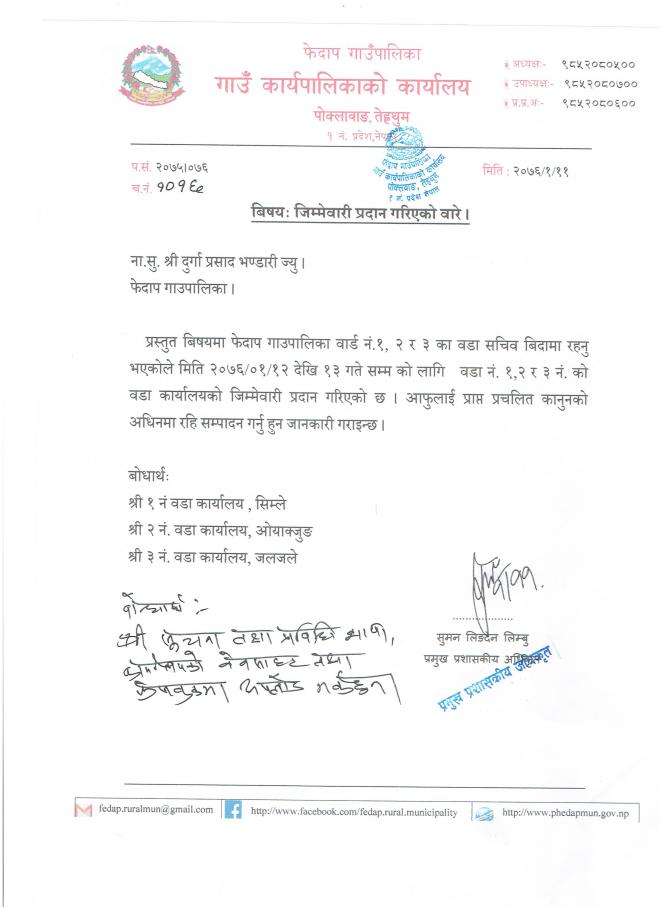 फेदाप गाउँपालिका
गाउँ कार्यपालिकाको कार्यालय
पोक्लावाङ, तेह्रथुम
१ नं. प्रदेश, नेपाल
अध्यक्षः- ९८५२०८०५००
उपाध्यक्षः- ९८५२०८०७००
प्र.प्र.अः- ९८५२०८०६००
फेदाप गाउँपालिका
गाउँ कार्यपालिकाको कार्यालय
पोक्लावाङ, तेह्रथुम
१ नं. प्रदेश नेपाल
प.सं. २०७५।०७६
मिति : २०७६/१/११
च.नं.
बिषयः जिम्मेवारी प्रदान गरिएको वारे।
ना.सु. श्री दुर्गा प्रसाद भण्डारी ज्यु।
फेदाप गाउपालिका।
प्रस्तुत बिषयमा फेदाप गाउपालिका वार्ड नं.१, २ र ३ का वडा सचिव बिदामा रहनु
भएकोले मिति २०७६/०१/१२ देखि १३ गते सम्म को लागि वडा नं. १,२ र ३ नं. को
वडा कार्यालयको जिम्मेवारी प्रदान गरिएको छ । आफुलाई प्राप्त प्रचलित कानुनको
अधिनमा रहि सम्पादन गर्नु हुन जानकारी गराइन्छ।
बोधार्थः
श्री १ नं वडा कार्यालय , सिम्ले
श्री २ नं. वडा कार्यालय, ओयाक्जुङ
श्री ३ नं. वडा कार्यालय, जलजले
बोधार्थ :-
श्री सूचना तथा प्रविधि शाखा,
वेभसाइट तथा
फेसबुकमा अपलोड गर्नुहुन।
सुमन लिङदेन लिम्बु
प्रमुख प्रशासकीय अधिकृत
प्रमुख प्रशासकीय अधिकृत
fedap.ruralmun@gmail.com
http://www.facebook.com/fedap.rural.municipality
http://www.phedapmun.gov.np